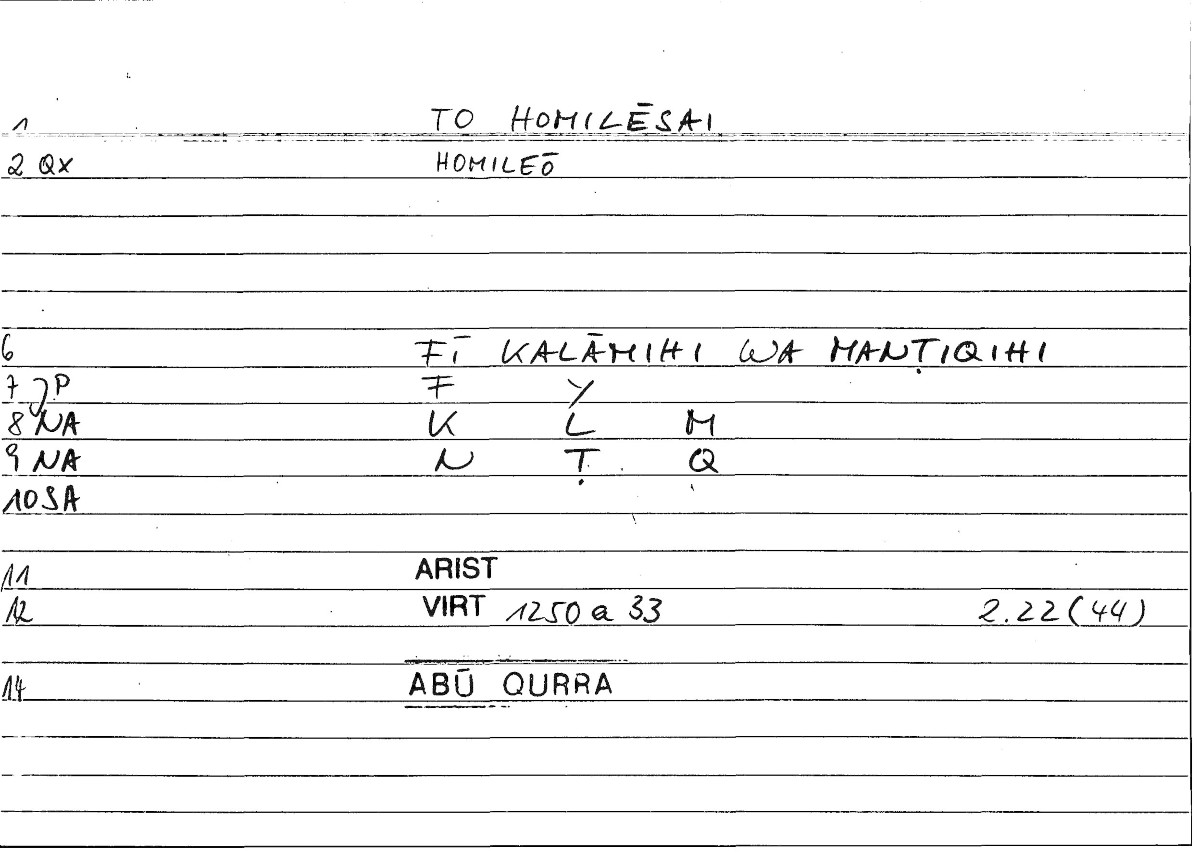 1 TO HOMILĒSAI
2 QX HOMILEŌ
6 FĪ KALĀMIHI WA MANṬIQIHI
7 JP F Y
8 NA K L M
9 NA N Ṭ Q
10 SA
11 ARIST
12 VIRT 1250 a 33 2.22 (44)
14 ABŪ QURRA